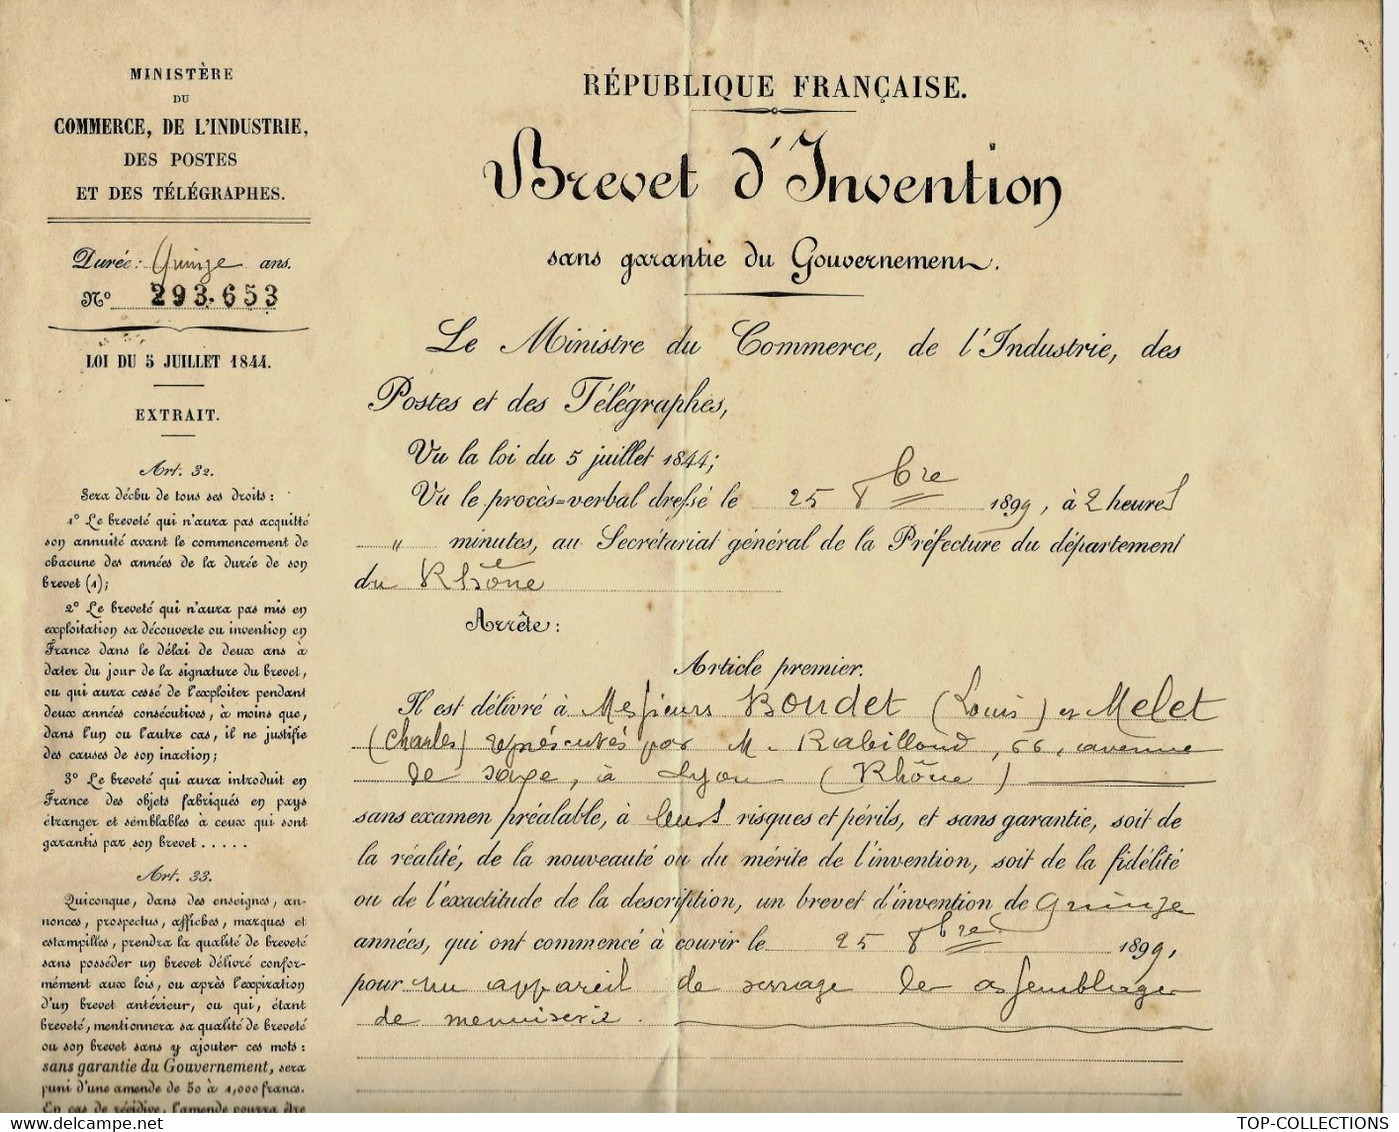 MINISTÈRE
DU
COMMERCE, DE L'INDUSTRIE,
DES POSTES
ET DES TÉLÉGRAPHES.
Durée: Quinze ans.
N° 293.653
LOI DU 5 JUILLET 1844.
EXTRAIT.
Art. 32.
Sera déchu de tous ses droits :
1° Le breveté qui n'aura pas acquitté
son annuité avant le commencement de
chacune des années de la durée de son
brevet (1);
2° Le breveté qui n'aura pas mis en
exploitation sa découverte ou invention en
France dans le délai de deux ans à
dater du jour de la signature du brevet,
ou qui aura cessé de l'exploiter pendant
deux années consécutives, à moins que,
dans l'un ou l'autre cas, il ne justifie
des causes de son inaction;
3° Le breveté qui aura introduit en
France des objets fabriqués en pays
étranger et semblables à ceux qui sont
garantis par son brevet . . . . .
Art. 33.
Quiconque, dans des enseignes, an-
nonces, prospectus, affiches, marques et
estampilles, prendra la qualité de breveté
sans posséder un brevet délivré confor-
mément aux lois, ou après l'expiration
d'un brevet antérieur, ou qui, étant
breveté, mentionnera sa qualité de breveté
ou son brevet sans y ajouter ces mots :
sans garantie du Gouvernement, sera
puni d'une amende de 50 à 1,000 francs.
En cas de récidive, l'amende pourra être
RÉPUBLIQUE FRANÇAISE.
Brevet d'Invention
sans garantie du Gouvernement.
Le Ministre du Commerce, de l'Industrie, des
Postes et des Télégraphes,
Vu la loi du 5 juillet 1844;
Vu le procès-verbal dressé le 25 8bre 1899, à 2 heures
" minutes, au Secrétariat général de la Préfecture du département
du Rhône
Arrête :
Article premier.
Il est délivré à Messieurs Boudet (Louis) et Melet
(Charles) représentés par M. Rabilloud, 66, avenue
de Saxe, à Lyon (Rhône)
sans examen préalable, à leurs risques et périls, et sans garantie, soit de
la réalité, de la nouveauté ou du mérite de l'invention, soit de la fidélité
ou de l'exactitude de la description, un brevet d'invention de quinze
années, qui ont commencé à courir le 25 8bre 1899,
pour un appareil de serrage des assemblages
de menuiserie.
TOP-COLLECTIONS